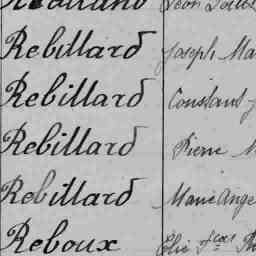 Rebillard Joseph Ma
Rebillard Constant
Rebillard Pierre M
Rebillard Marie Ange
Reboux Elie